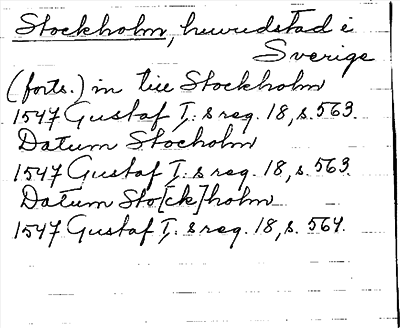 Stockholm, huvudstad i
Sverige
(forts.) in till Stockholm
1547 Gustaf I: s reg. 18, s. 563.
Datum Stocholm
1547 Gustaf I: s reg. 18, s. 563.
Datum Sto[ck]holm
1547 Gustaf I: s reg. 18, s. 564.